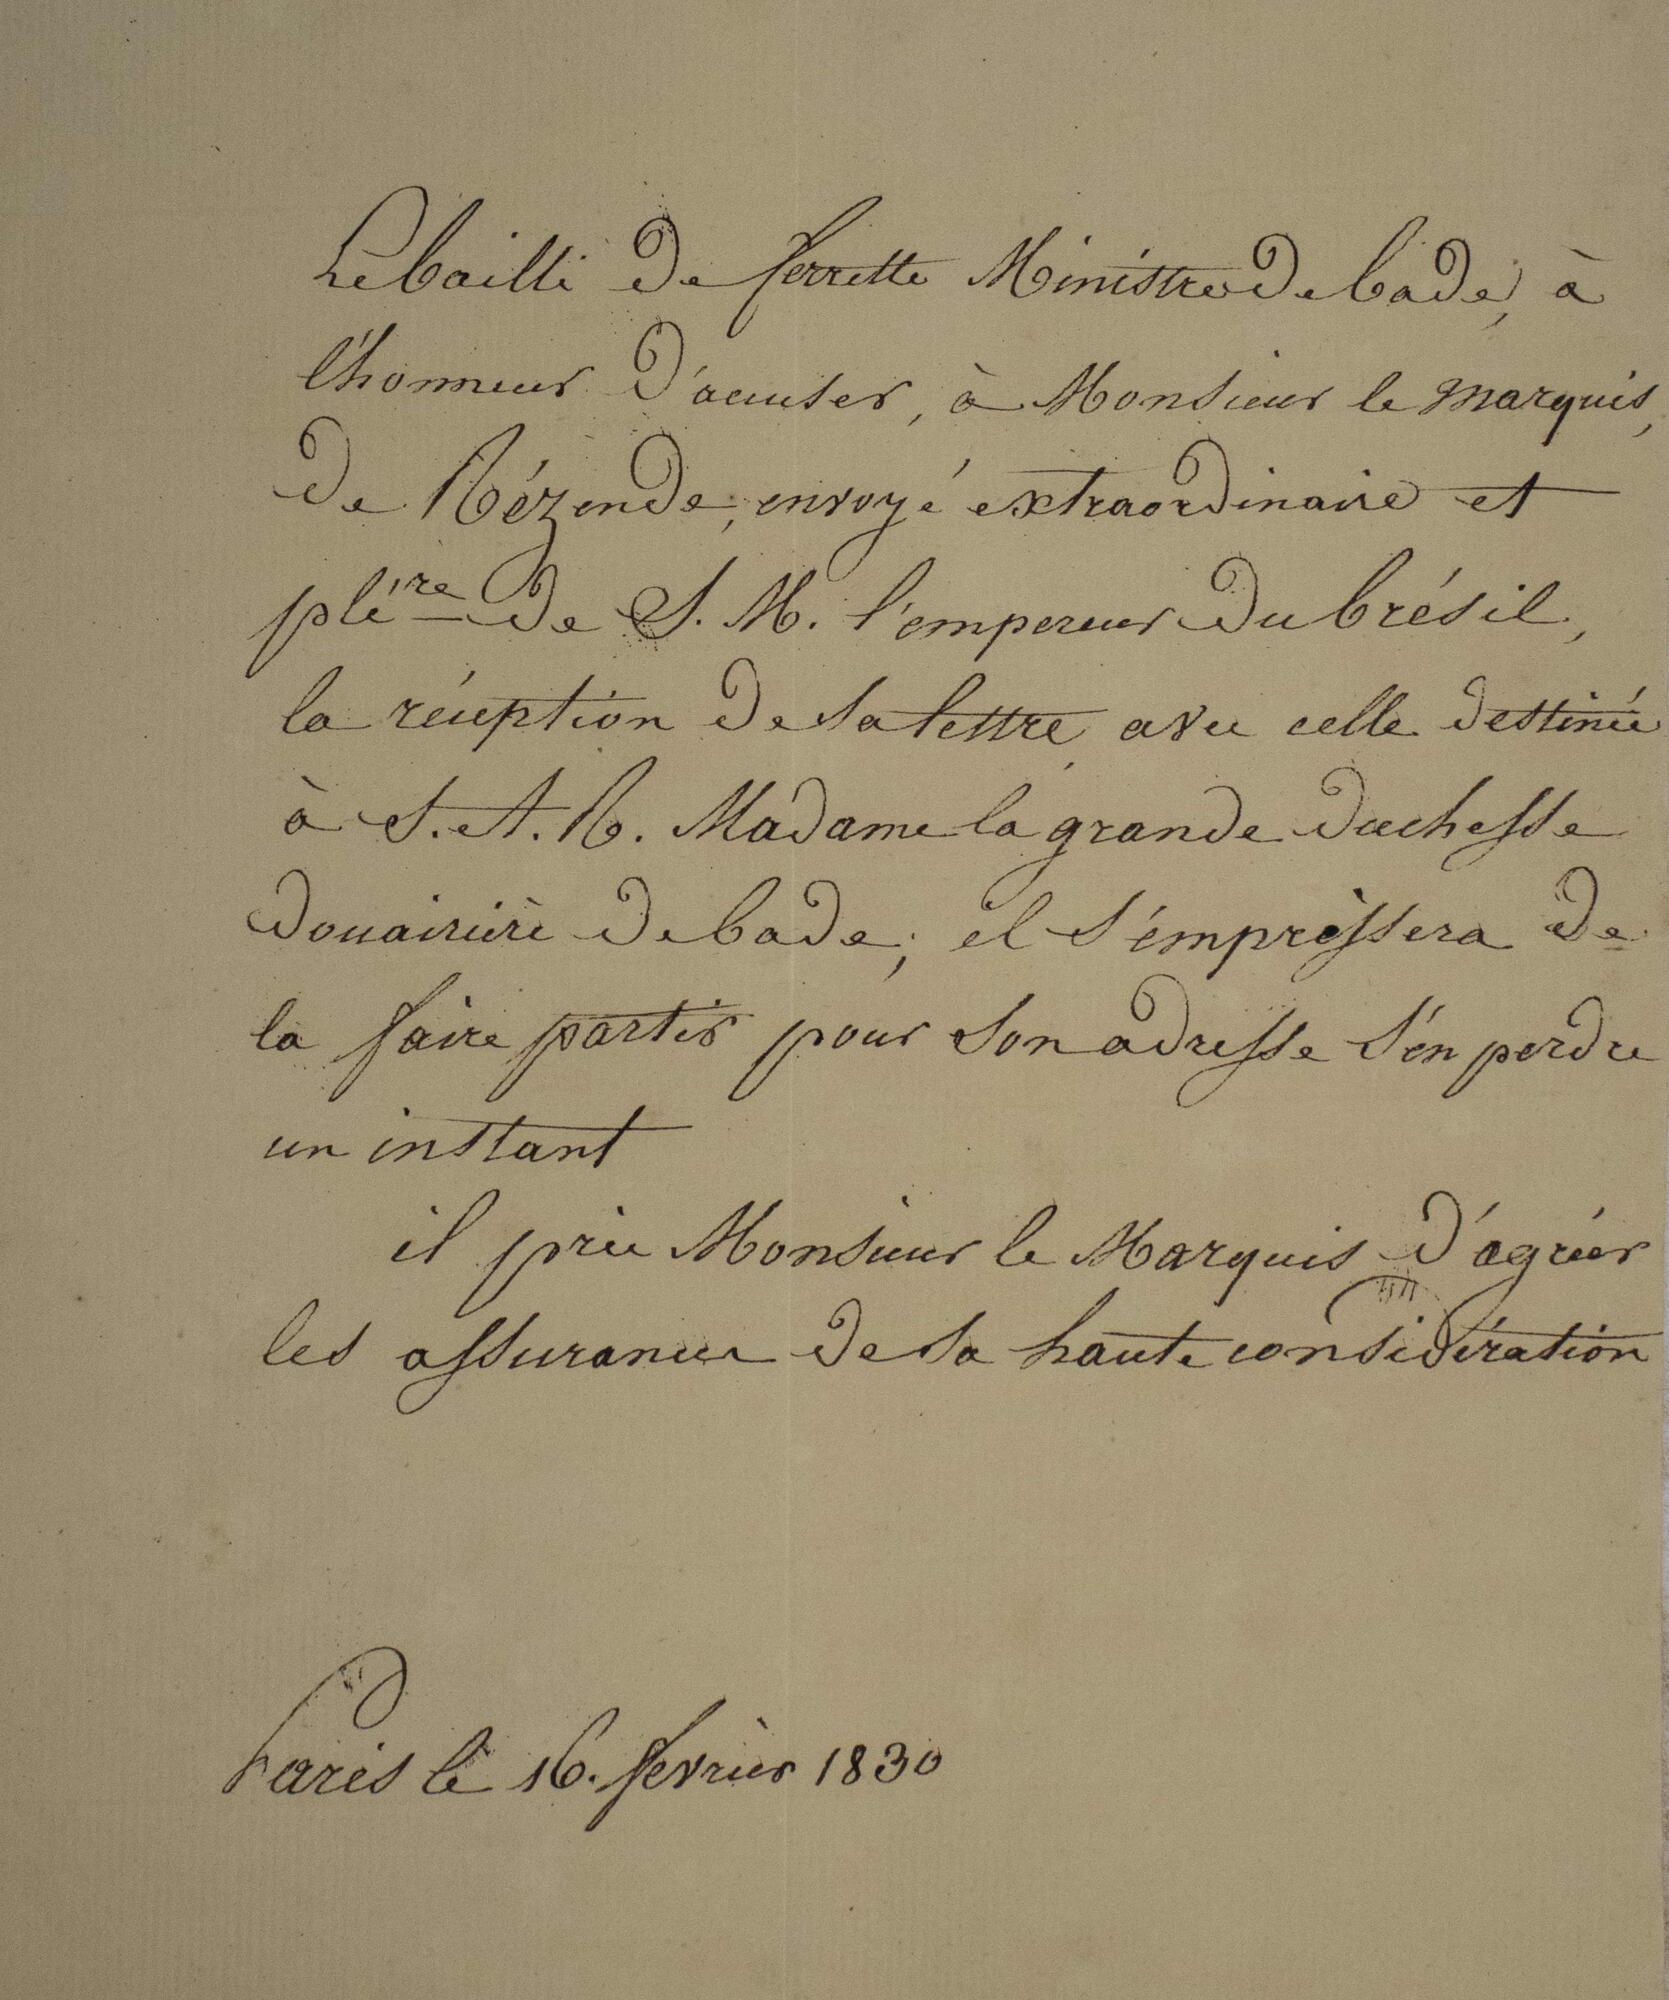 Le bailli de ferrette Ministre de bade, à
l'honneur d'acuser, à Monsieur le marquis,
de Rézende, envoyé extraordinaire et
plé're de S. M. l'empereur du brésil,
la réception de sa lettre, avec celle destinée
à S. A. R. Madame la grande duchesse
douairière de bade; il s'émpressera de
la faire partir pour son adresse s'en perdre
un instant
il prie Monsieur le Marquis d'agréer
les assurances de sa haute considération
Paris le 16. fevrier 1830